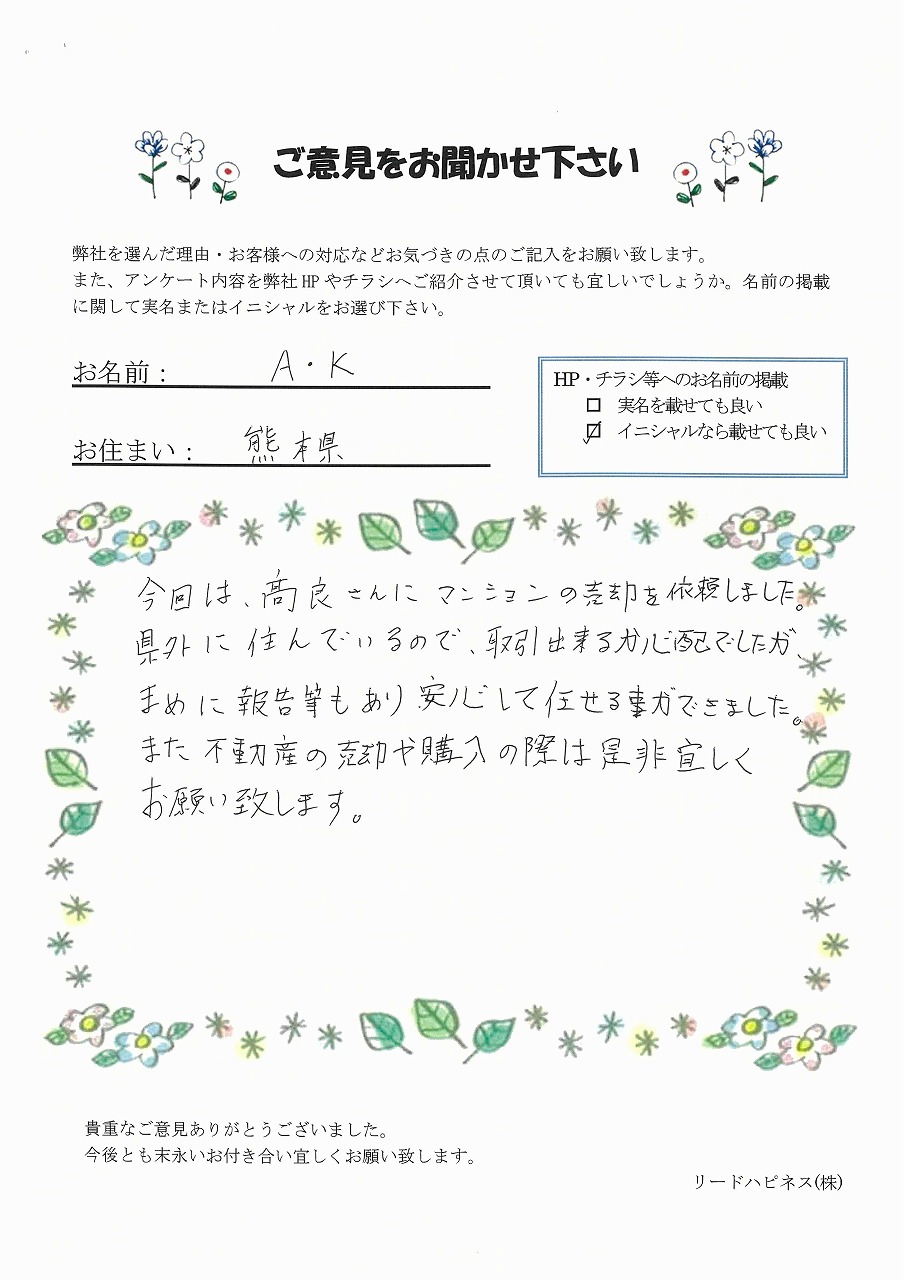 ご意見をお聞かせ下さい
弊社を選んだ理由・お客様への対応などお気づきの点のご記入をお願い致します。
また、アンケート内容を弊社HPやチラシへご紹介させて頂いても宜しいでしょうか。名前の掲載
に関して実名またはイニシャルをお選び下さい。
お名前： A・K
お住まい： 熊本県
HP・チラシ等へのお名前の掲載
□ 実名を載せても良い
☑ イニシャルなら載せても良い
今回は、髙良さんにマンションの売却を依頼しました。
県外に住んでいるので、取引出来るか心配でしたが、
まめに報告等もあり安心して任せる事ができました。
また不動産の売却や購入の際は是非宜しく
お願い致します。
貴重なご意見ありがとうございました。
今後とも末永いお付き合い宜しくお願い致します。
リードハピネス(株)